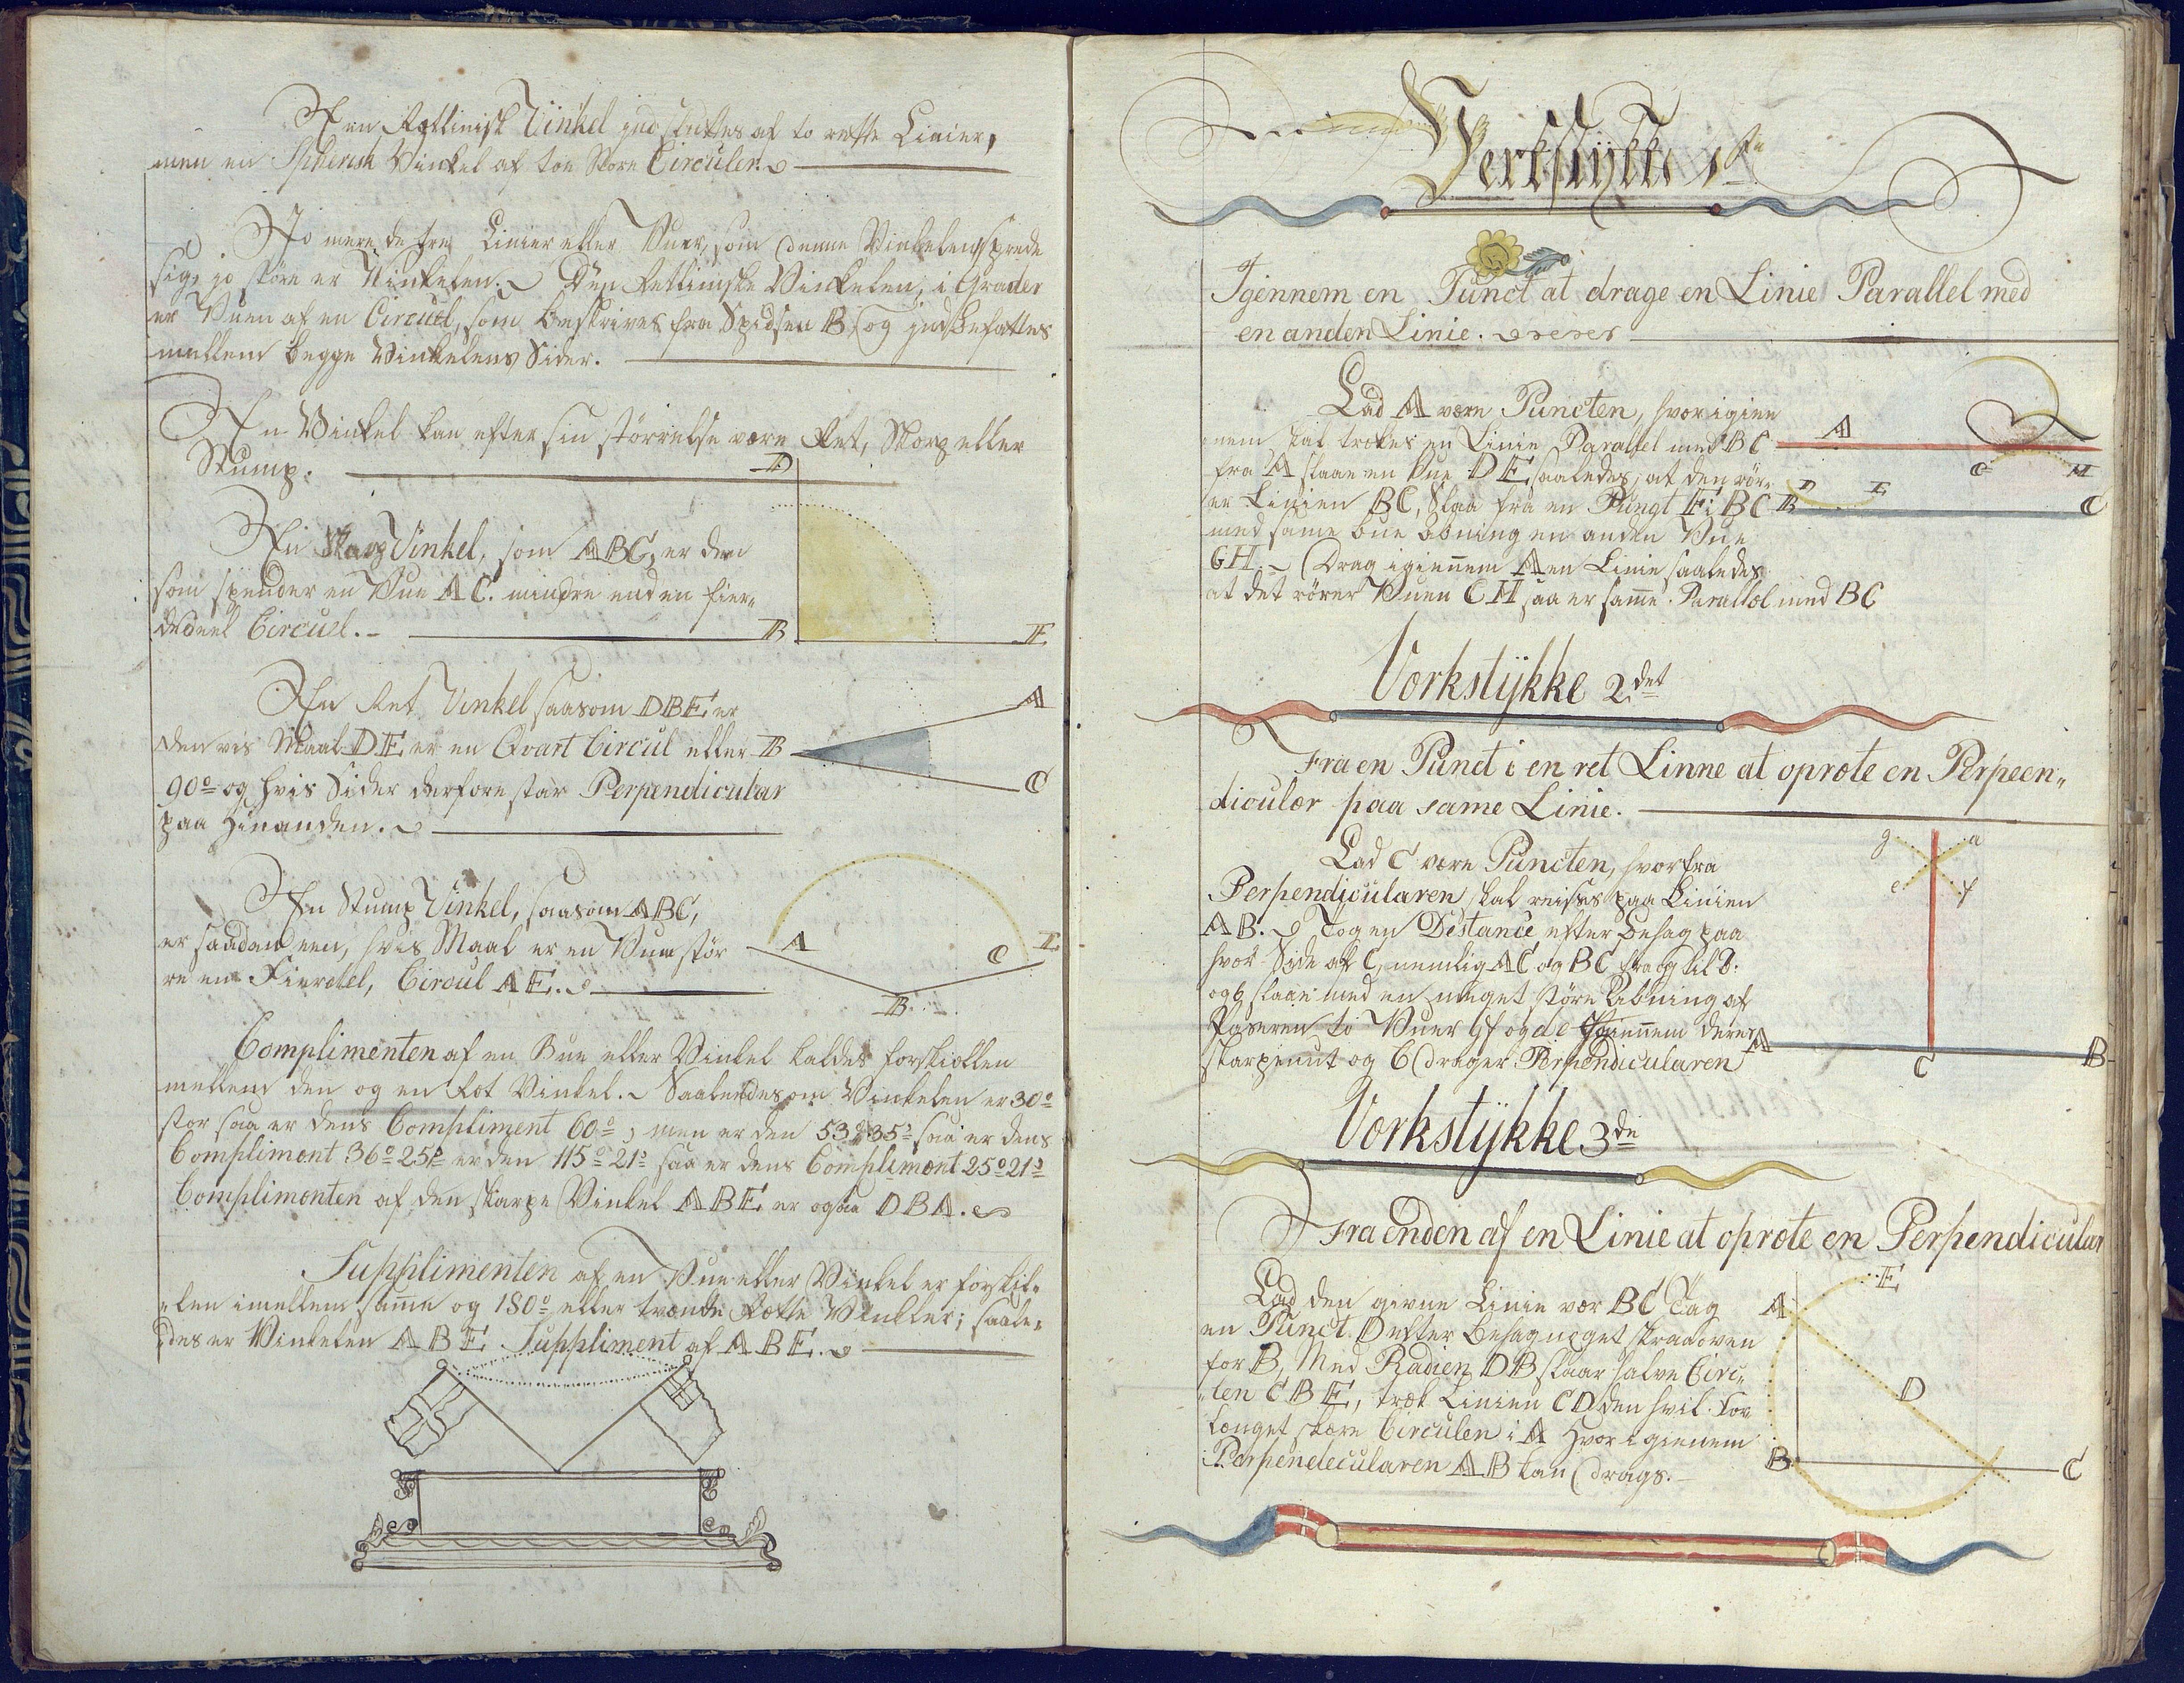 En Retlinisk Vinkel indsluttes af to rette Linier,
men en Spherisk Vinkel af toe Store Circuler.
Jo mere de tre Linier eller Buer, som denne Vinkelen sprede
sig, jo störe er Vinkelen. Den Retliniske Vinkelen, i Grader
er Buen af en Circuel, som beskrives fra Spidsen B og indbefattes
mellem begge Vinkelens Sider.
En Vinkel kan efter sin störrelse være Ret, Skarp eller
Stump.
D
En Skarp Vinkel, som ABC, er den
som spender en Bue AC. mindre end en fier„
dedeel Circuel.
B E
En Ret Vinkel saasom DBE er
den vis Maal DE er en Qvart Circul eller
90° og hvis Sider derfore star Perpendicular
paa hinanden.
A
B
C
En Stump Vinkel, saasom ABC,
er saadan een, hvis Maal er en Bue stör
re en Fierdel, Circul AE.
A C E
B
Complimenten af en Bue eller Vinkel kaldes forskiellen
mellem den og en Ret Vinkel. Saaledes om Vinkelen er 30°
stor saa er dens Compliment 60°, men er den 53° 35' saa er dens
Compliment 36° 25' er den 115° 21' saa er dens Compliment 25° 21'
Complimenten af den skarpe Vinkel ABE er ogsaa DBA.
Supplimenten af en Bue eller Vinkel er forskil„
„len imellem samme og 180° eller tvende Rette Vinkler; saale„
des er Vinkelen ABE Suppliment af ABE.
Verkstykke 1te
Igennem en Punct at drage en Linie Parallel med
en anden Linie.
Lad A være Puncten, hvor igien
nem skal trekes en Linie Parallel med BC
fra A slaae en Bue DE saaledes, at den rör„
er Linien BC, Slaa fra en Pungt F i BC
med same bue Abning en anden Bue
GH. Drag igiennem A en Linie saaledes
at det rörer Buen GH saa er samme Parallel med BC
A
G H
D E
B C
Vorkstykke 2det
Fra en Punct i en ret Linne at oprete en Perpeen„
diculær paa same Linie.
Lad C være Puncten, hvorfra
Perpendicularen skal reises paa Linien
AB. Tag en Distance efter behag paa
hvor Side af C, nemlig AC og BC
og slaae med en noget störe Aabning af
Passeren to Buer gf og Igiennem deres
og C drages Perpendicularen
g a
e f
A C B
Vorkstykke 3de
Fra enden af en Linie at oprete en Perpendicular
Lad den givne Linie vær BC Tag
en Punct D efter behag noget skraa oven
for B, Med Radien DB slaar halve Circ„
„len CBE, træk Linien CD den hvil for
længet skære Circulen i A hvor igienem
Perpendecularen AB kan drages.
E
A
D
B C